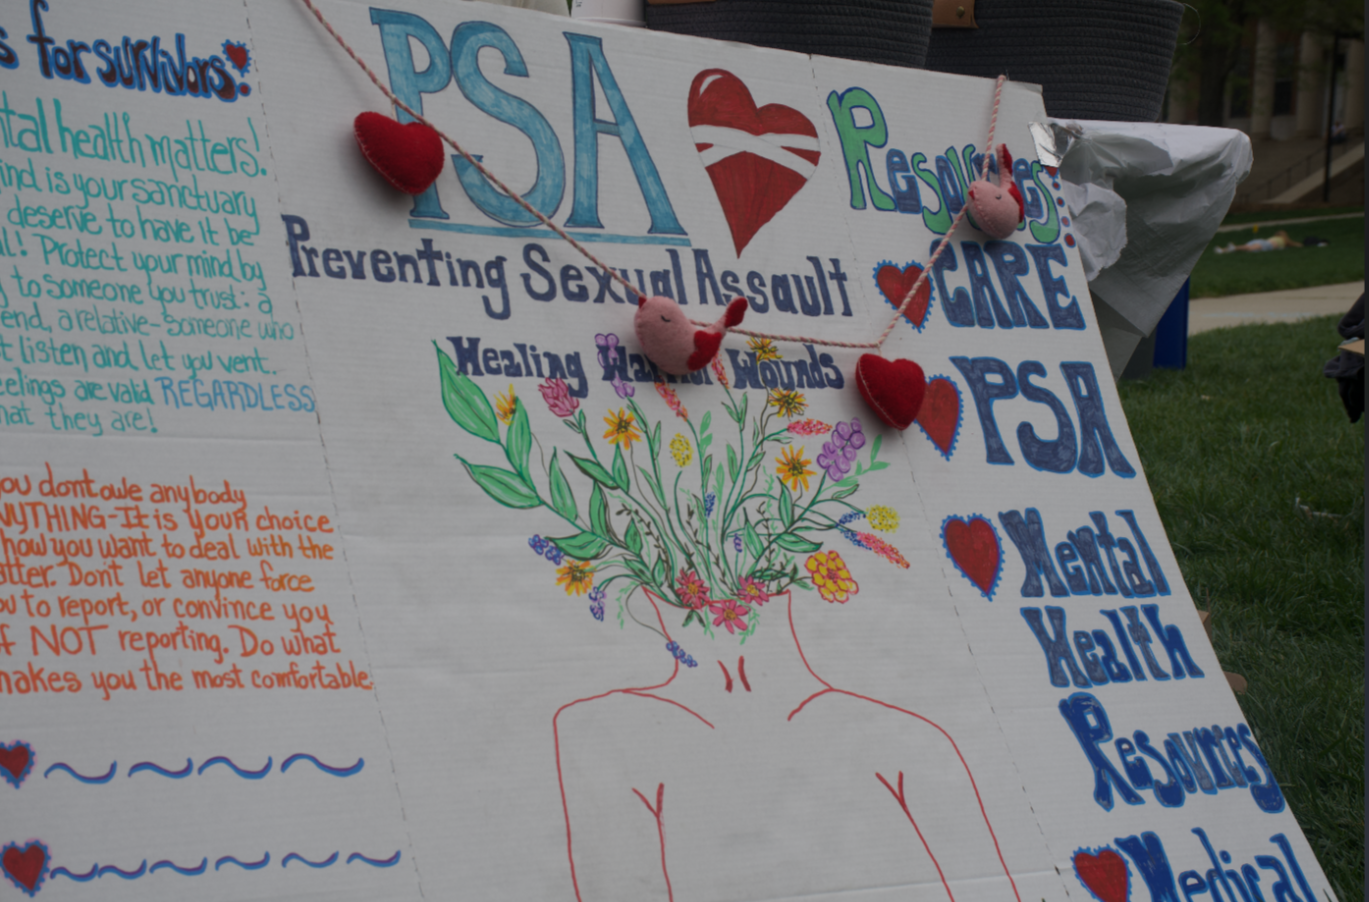 s for survivors
tal health matters!
ind is your sanctuary
deserve to have it be
l! Protect your mind by
to someone you trust: a
end, a relative-someone who
t listen and let you vent.
eelings are valid REGARDLESS
hat they are!
ou dont owe anybody
NYTHING-It is your choice
how you want to deal with the
atter. Don't let anyone force
ou to report, or convince you
f NOT reporting. Do what
makes you the most comfortable.
PSA
Preventing Sexual Assault
Healing Warrior Wounds
Resources
CARE
PSA
Mental
Health
Resources
Medical